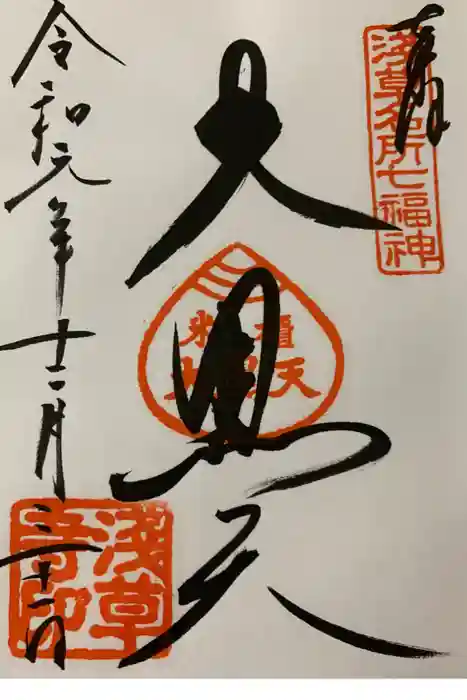 奉拝
浅草名所七福神
大黒天
令和元年十二月三十一日
浅草寺印